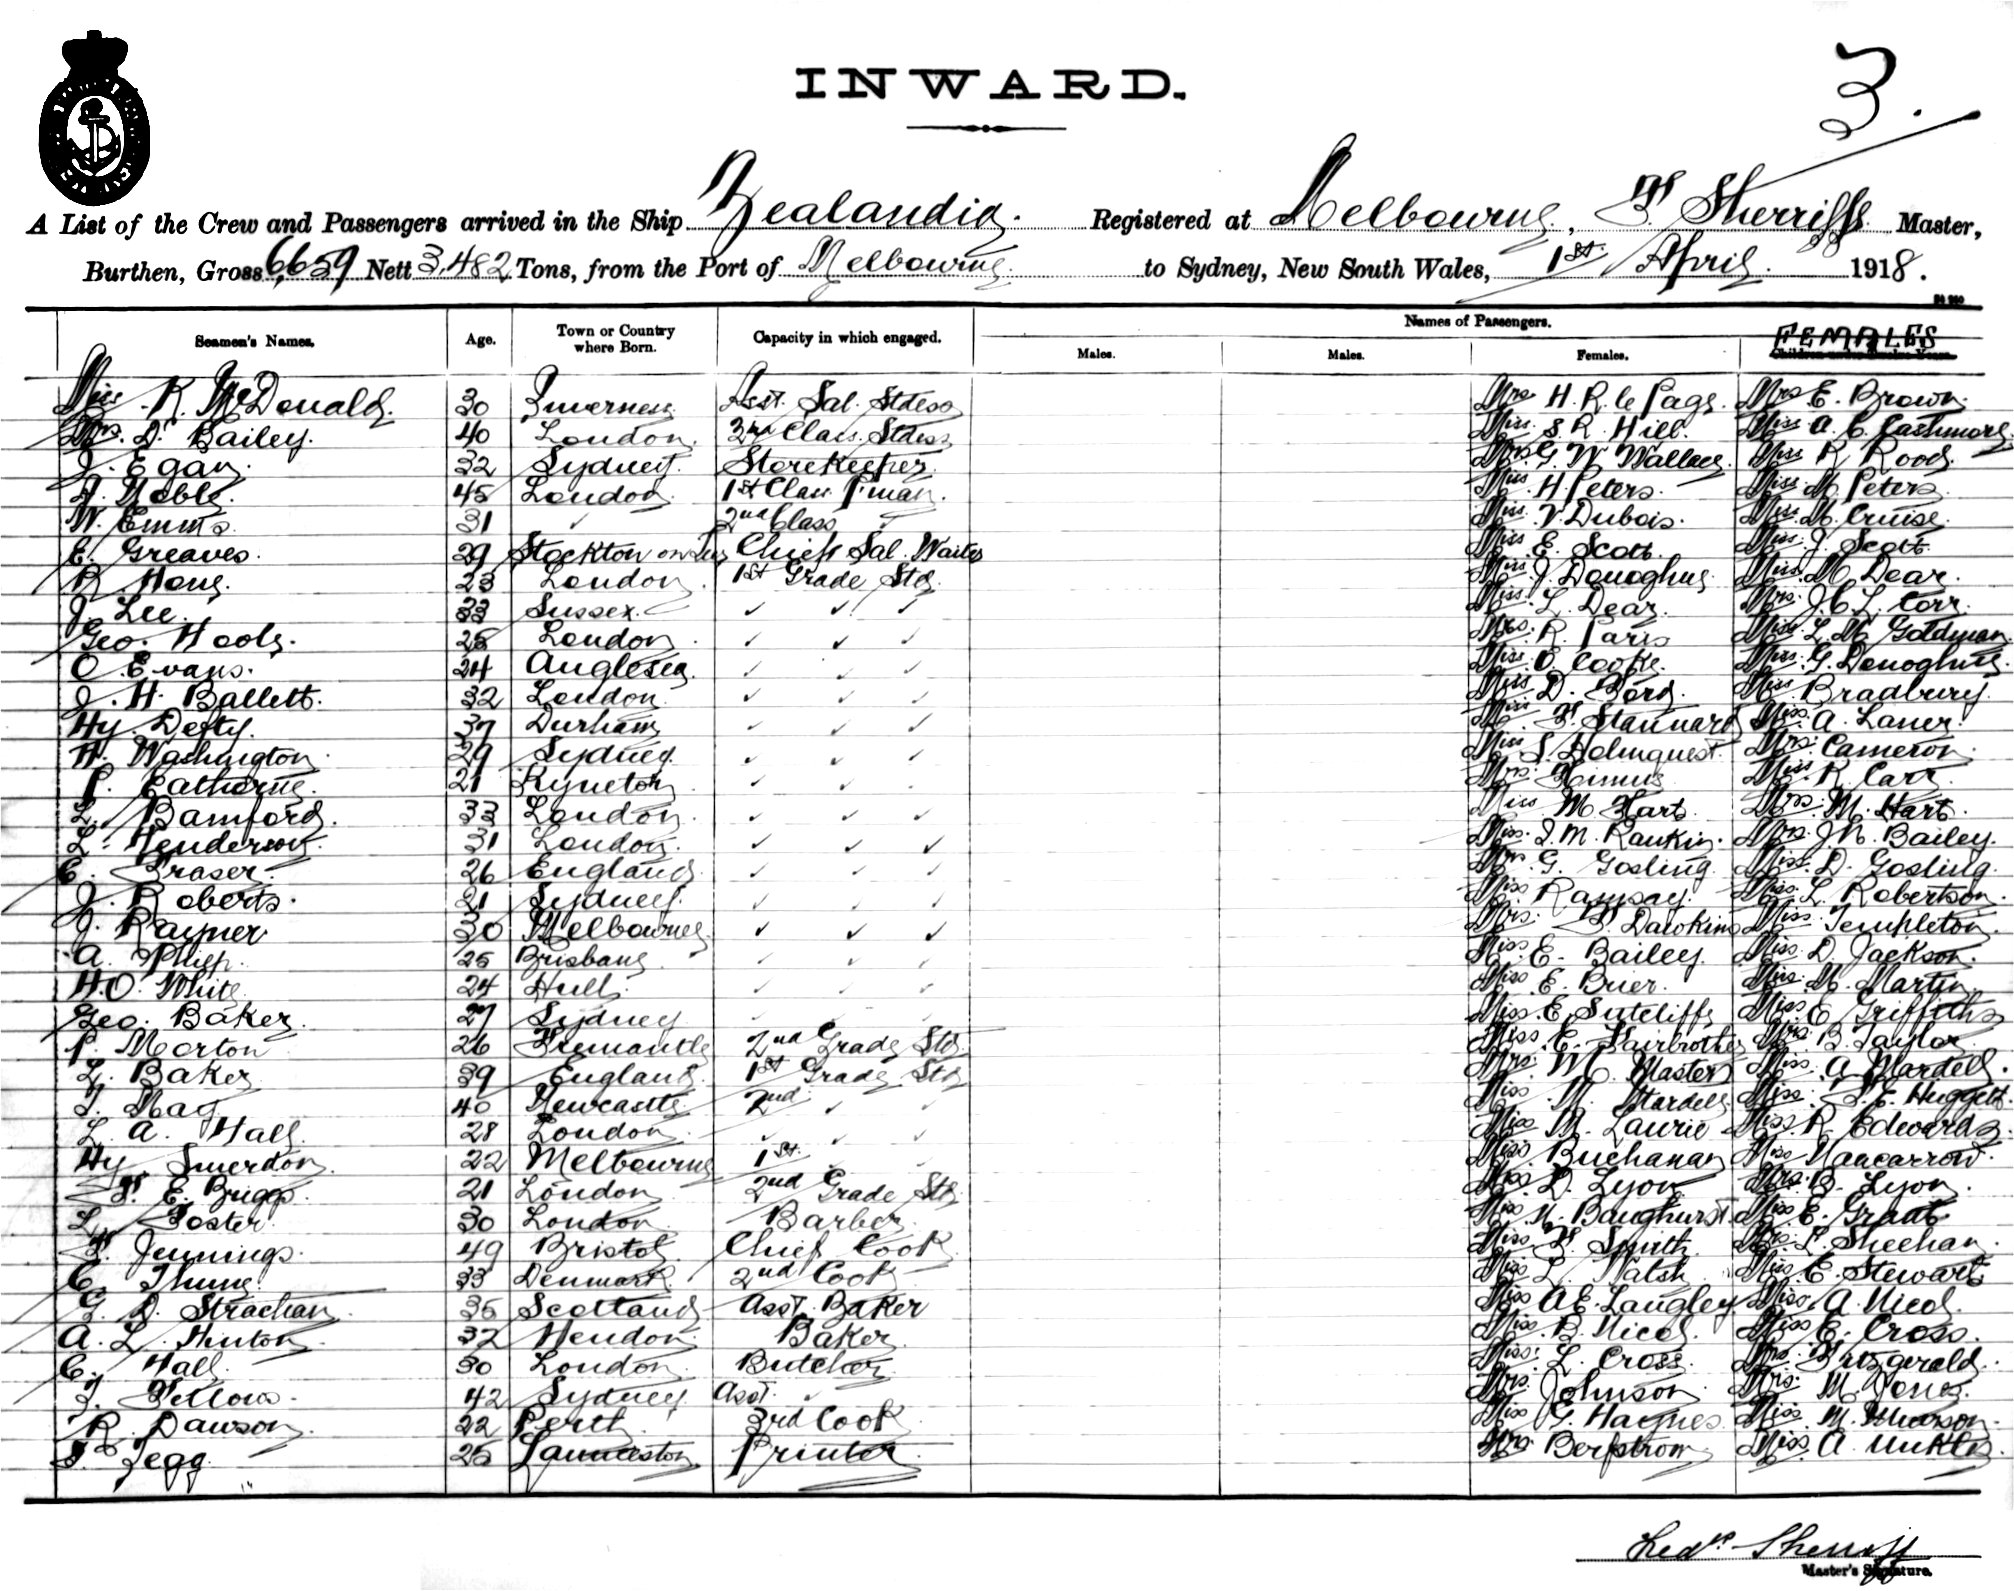 INWARD.
3.
A List of the Crew and Passengers arrived in the Ship Zealandia. Registered at Melbourne, F. Sherriff Master,
Burthen, Gross 6,659 Nett 3,482 Tons, from the Port of Melbourne to Sydney, New South Wales, 1st April 1918.
Names of Passengers.
Seamen's Names. Age. Town or Country where Born. Capacity in which engaged. Males. Males. Females. FEMALES
Miss K. McDonald. 30 Inverness Asst. Sal. Stdess Mrs H. R. le Page. Mrs E. Brown.
Mrs. D. Bailey. 40 London. 3rd Class. Stdess Miss S. R. Hill. Miss A. C. Cashmore.
J. Egan. 32 Sydney. Storekeeper. Mrs G. W. Wallace. Miss R. Rood.
J. Noble. 45 London. 1st Class P'man. Miss H. Peters. Miss M. Peters.
W. Emms. 31 ✓ 2nd Class ✓ Miss V. Dubois. Miss M. Cruise.
E. Greaves. 29 Stockton on Tees Chief Sal. Waiter Miss E. Scott. Miss J. Scott.
R. Hong. 23 London. 1st Grade Std. Miss J. Donoghue. Miss M. Dear.
J. Lee. 33 Sussex. ✓ ✓ ✓ Miss L. Dear. Mrs. J. C. L. Corr.
Geo. Hools. 25 London. ✓ ✓ ✓ Mrs. R. Paris Miss L. M. Goldman.
O. Evans. 24 Anglesea. ✓ ✓ ✓ Miss O. Cooke. Miss G. Donoghue.
J. H. Ballett. 32 London ✓ ✓ ✓ Miss D. Bord. Miss Bradbury.
Hy. Defty. 37 Durham ✓ ✓ ✓ Miss F. Stannard Miss. A. Laner.
H. Washington 29 Sydney. ✓ ✓ ✓ Miss S. Holmquest. Mrs. Cameron.
P. Catherine. 21 Kyneton ✓ ✓ ✓ Mrs. Miss R. Carr.
L. Bamford. 33 London. ✓ ✓ ✓ Miss M. Hart. Mrs. M. Hart.
L. Henderson. 31 London. ✓ ✓ ✓ Miss J. M. Rankin. Mrs J. N. Bailey.
C. Fraser. 26 England. ✓ ✓ ✓ Mrs G. Gosling. Miss. D. Gosling.
J. Roberts. 21 Sydney. ✓ ✓ ✓ Miss Ramsay. Miss. L. Robertson.
J. Rayner 30 Melbourne ✓ ✓ ✓ Mrs. F. Dawkins Miss. Templeton.
A. Philp. 25 Brisbane. ✓ ✓ ✓ Miss. E. Bailey. Miss. D. Jackson.
H. O. White. 24 Hull. ✓ ✓ ✓ Miss. E. Brier. Miss. M. Martin.
Geo. Baker. 27 Sydney Miss. E. Sutcliffe Miss. E. Griffiths
P. Morton 26 Fremantle 2nd Grade Std. Miss. E. Fairbrother Mrs. B. Taylor.
L. Baker 39 England 1st Grade Std. Mrs. M. Masters Miss. A. Mardell.
T. Nag 40 Newcastle 2nd ✓ ✓ Miss. M. Mardell Miss. F. E. Huggett.
L. A. Hall. 28 London ✓ ✓ ✓ Miss M. Laurie Miss. R. Edwards.
Hy. Smerdon. 22 Melbourne 1st. Miss Buchanan Miss Nancarrow.
F. E. Briggs. 21 London 2nd Grade Std. Miss D. Lyon Mrs. B. Lyon.
L. Foster. 30 London. Barber. Miss N. Baughurst Miss E. Grant.
F. Jennings. 49 Bristol Chief Cook Miss. F. Smith. Mrs. L. Sheehan.
C. Thune. 33 Denmark. 2nd Cook Miss L. Walsh. Miss. E. Stewart.
G. D. Strachan 35 Scotland Asst. Baker Miss A E. Langley Miss. A. Nicol.
A. L. Hinton 32 Hendon Baker. Miss. B. Nicol. Miss E. Cross.
C. Hall. 30 London. Butcher Miss. L. Cross. Mrs. Fitzgerald.
T. Fellows. 42 Sydney Asst. ✓ Mrs. Johnson. Mrs. M. Jones.
R. Dawson. 22 Perth. 3rd Cook Miss G. Haynes. Miss. M.
F. Tegg. 25 Launceston Printer Mrs Berfstrom Miss. A. Unkles
Fredk. Sherriff
Master's Signature.